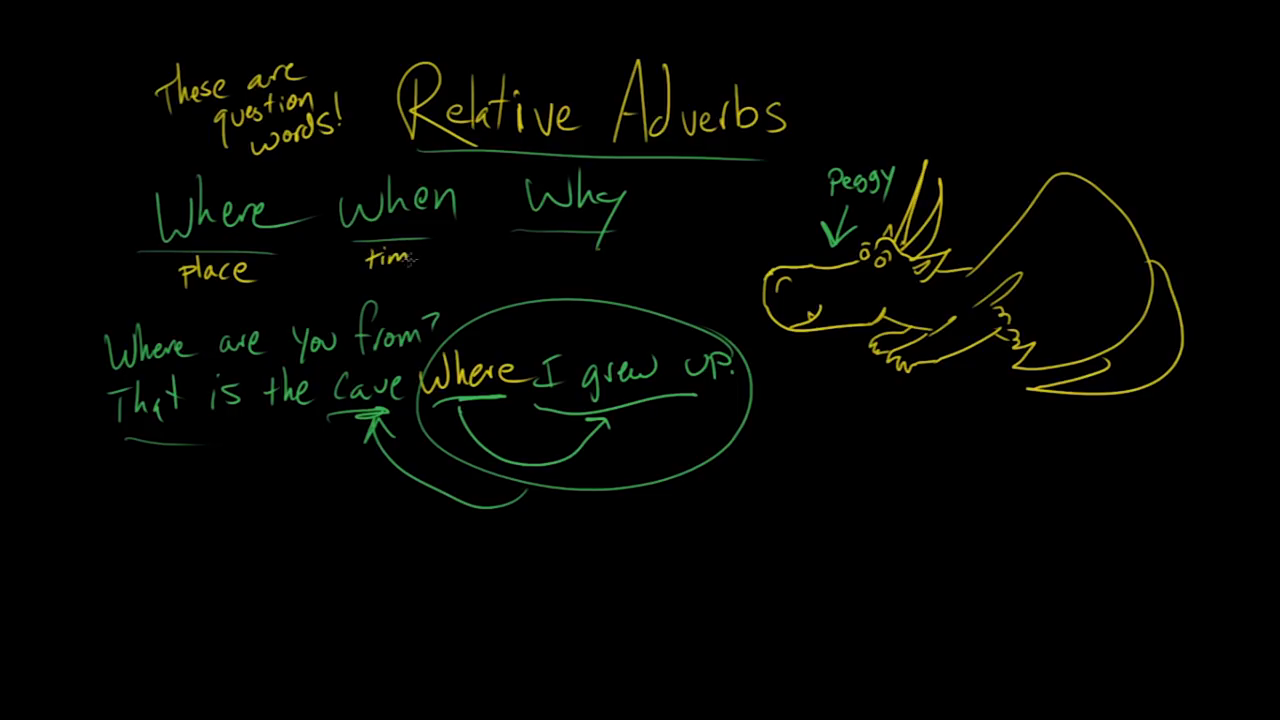 These are
question
words!
Relative Adverbs
Where When Why
place tim
Peggy
Where are you from?
That is the cave where I grew up.